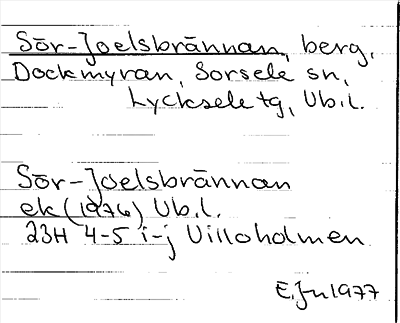 Sör-Joelsbrännan, berg,
Dockmyran, Sorsele sn,
Lycksele tg, Vb.l.
Sör-Joelsbrännan
ek (1976) Vb.l.
23H 4-5 i-j Villoholmen
E. Ju 1977